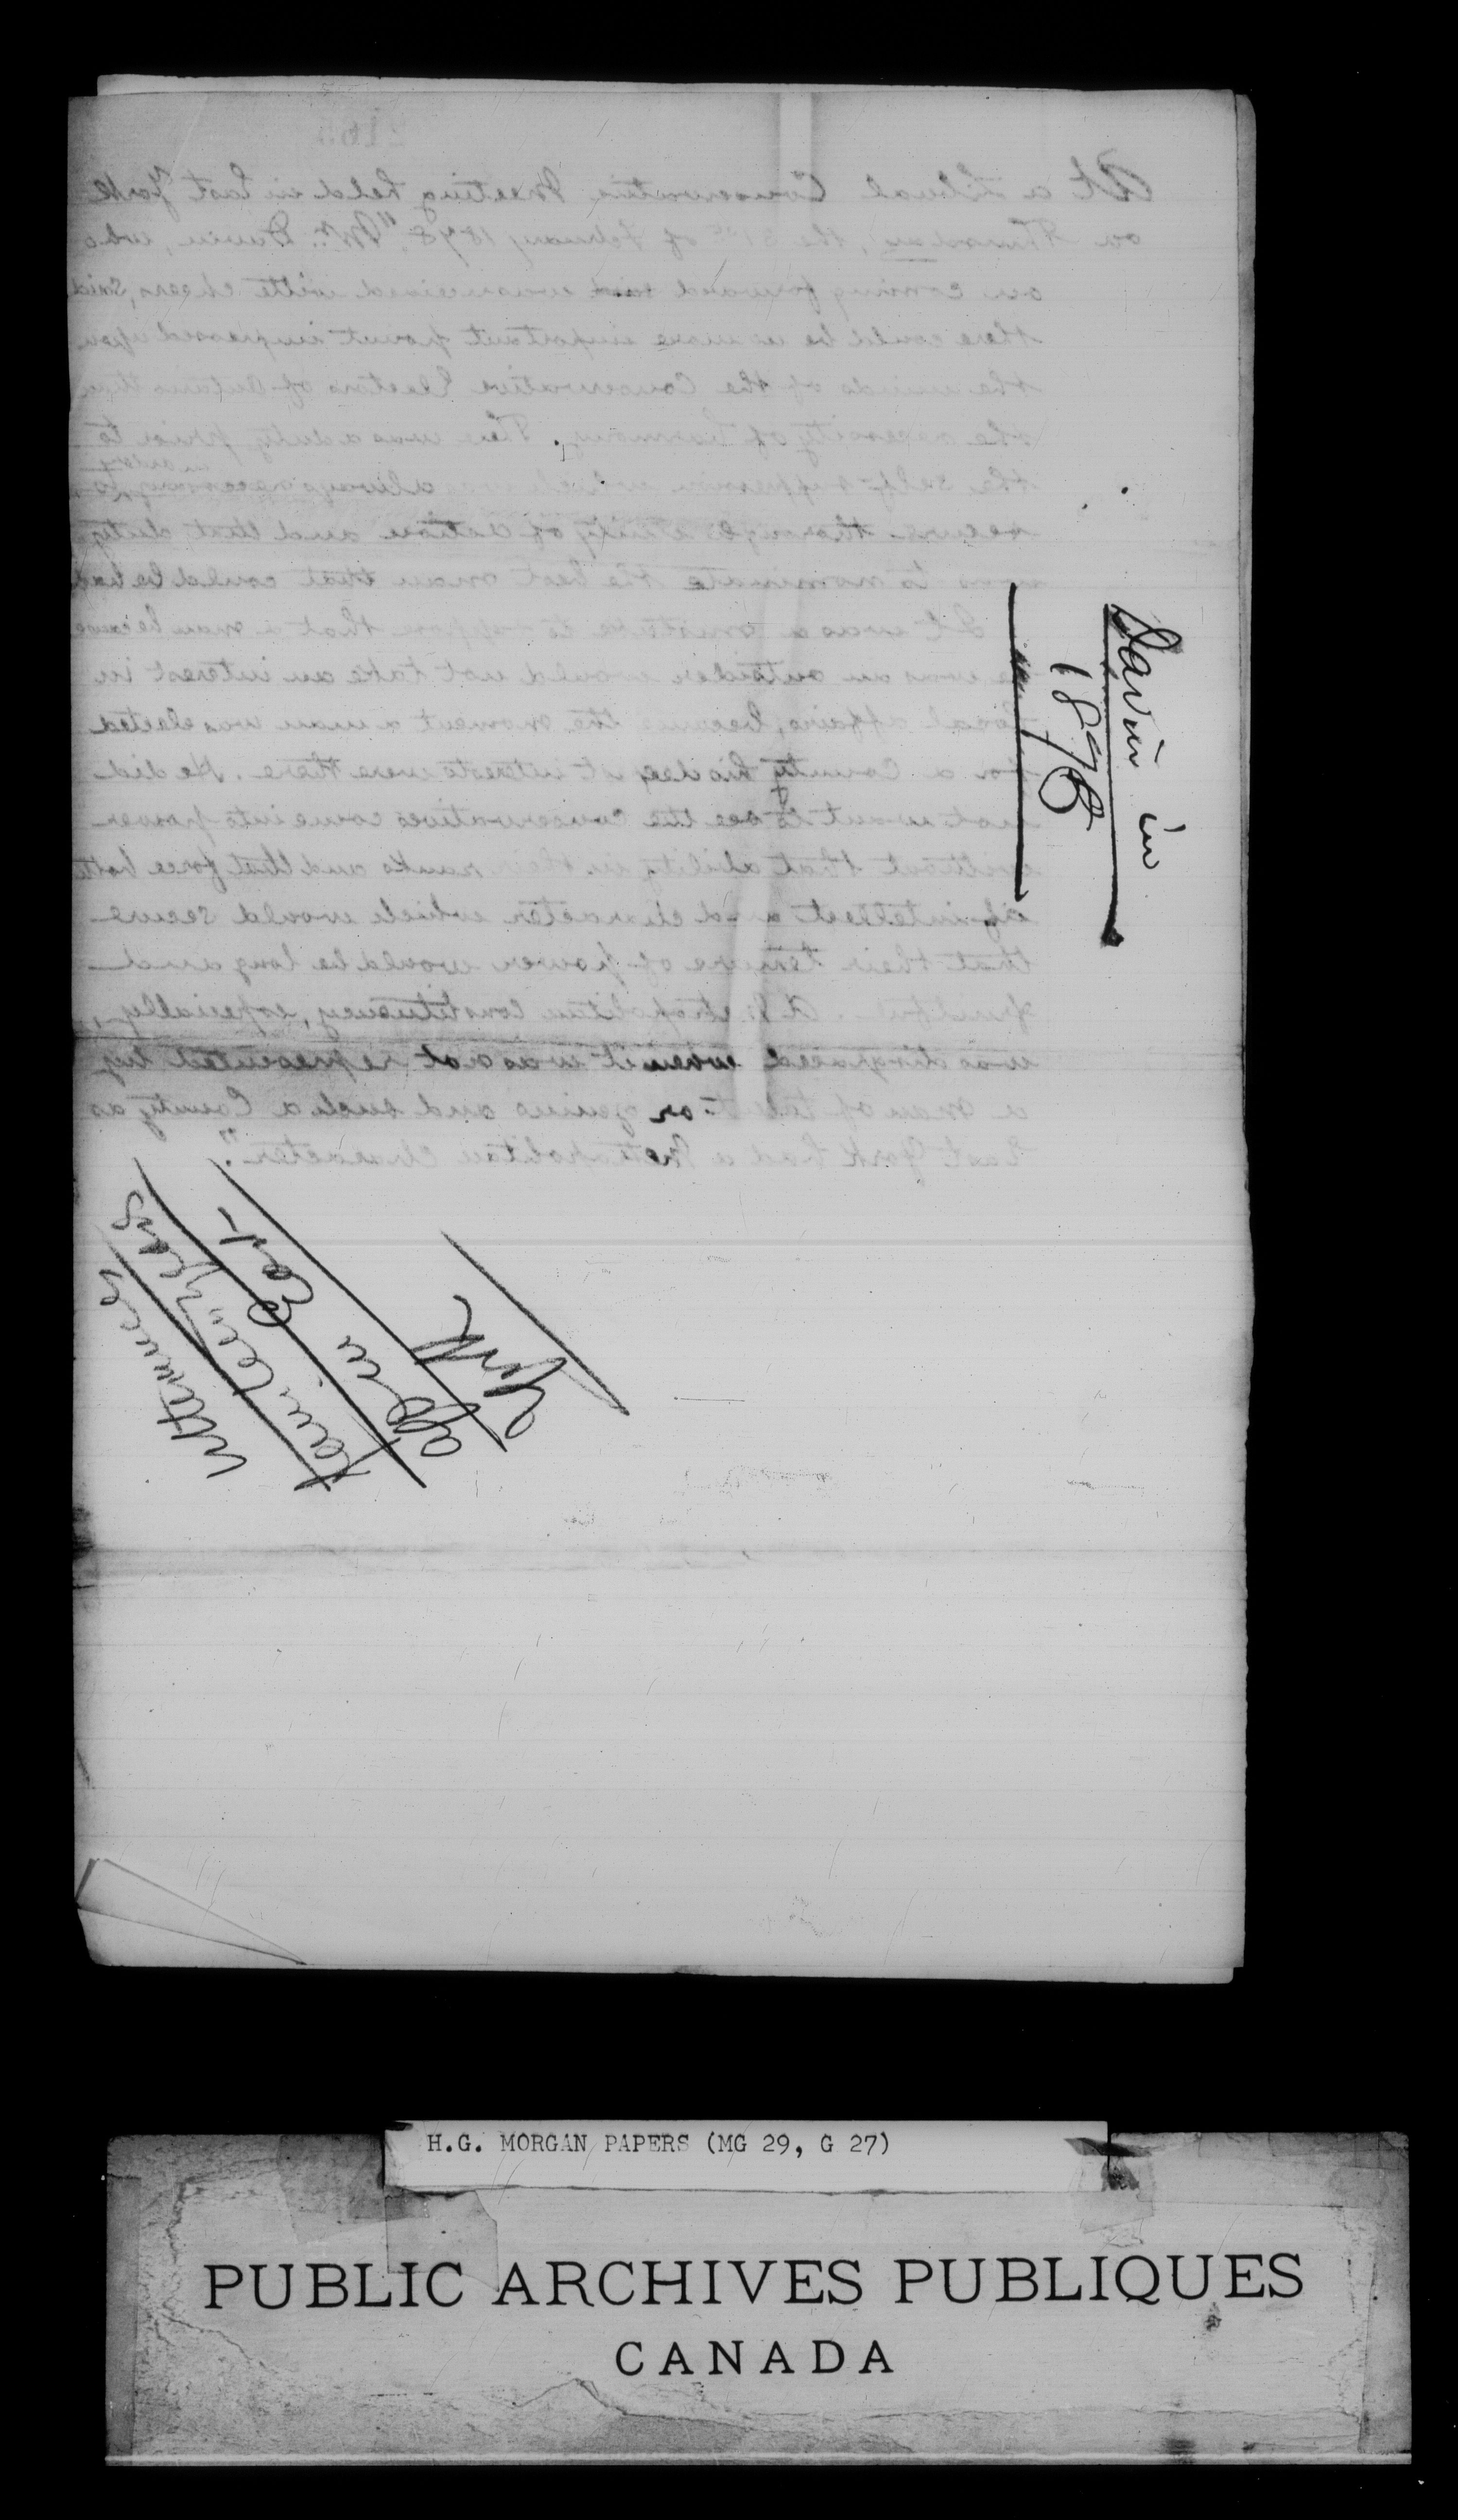 At a Liberal Conservative Meeting held in East York
on Thursday, the 21st of February 1878, "Mr. Davin, who
on coming forward was received with cheers, said
there could be no more important point impressed upon
the minds of the Conservative Electors of Ontario than
the necessity of harmony. There was a duty prior to
the self suppression which was always necessary in order to
secure thorough unity of action and that duty
was to nominate the best man that could be had
It was a mistake to suppose that a man because
he was an outsider would not take an interest in
local affairs, because the moment a man was elected
for a County his deepest interests were there. He did
not want to see the Conservatives come into power
without that ability in their ranks and that force both
of intellect and character which would secure
that their tenure of power would be long and
fruitful. A Metropolitan Constituency, especially,
was disgraced when it was not represented by
a man of talent or genius and such a County as
East York had a Metropolitan character."
Davin in
1878
utterances
years
ago in East
York
H.G. MORGAN PAPERS (MG 29, G 27)
PUBLIC ARCHIVES PUBLIQUES
CANADA